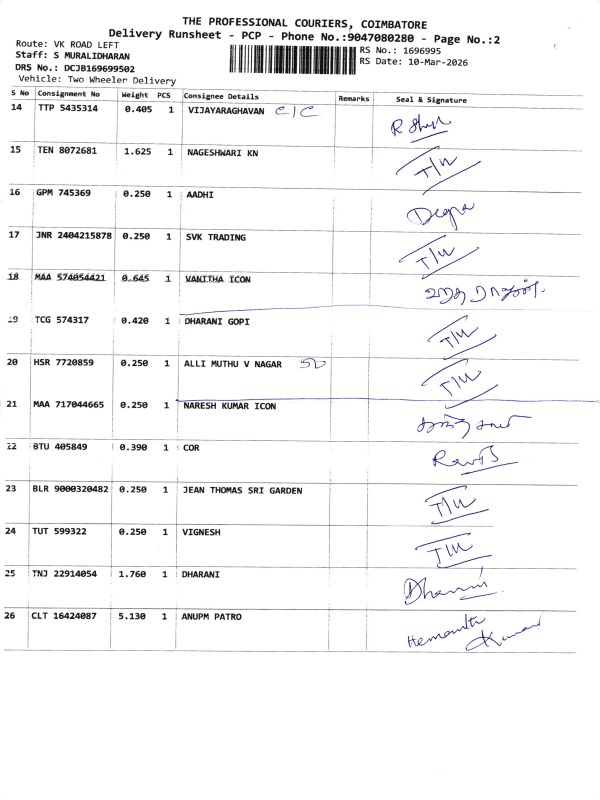 THE PROFESSIONAL COURIERS, COIMBATORE
Delivery Runsheet - PCP - Phone No.:9047080280 - Page No.:2
Route: VK ROAD LEFT
Staff: S MURALIDHARAN
DRS No.: DCJB169699502
Vehicle: Two Wheeler Delivery
RS No.: 1696995
RS Date: 10-Mar-2026
S No Consignment No Weight PCS Consignee Details Remarks Seal & Signature
14 TTP 5435314 0.405 1 VIJAYARAGHAVAN
15 TEN 8072681 1.625 1 NAGESHWARI KN T/U
16 GPM 745369 0.250 1 AADHI Deepa
17 JNR 2404215878 0.250 1 SVK TRADING T/U
18 MAA 574054421 0.645 1 VANITHA ICON
19 TCG 574317 0.420 1 DHARANI GOPI T/U
20 HSR 7720859 0.250 1 ALLI MUTHU V NAGAR T/U
21 MAA 717044665 0.250 1 NARESH KUMAR ICON
22 BTU 405849 0.390 1 COR
23 BLR 9000320482 0.250 1 JEAN THOMAS SRI GARDEN T/U
24 TUT 599322 0.250 1 VIGNESH T/U
25 TNJ 22914054 1.760 1 DHARANI Dharani
26 CLT 16424087 5.130 1 ANUPM PATRO Hemanth Kumar